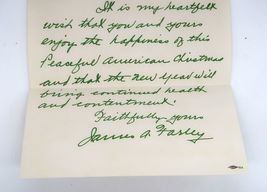 It is my heartfelt
wish that you and yours
enjoy the happiness of this
Peaceful American Christmas
and that the new year will
bring continued health
and contentment.
Faithfully yours
James A. Farley